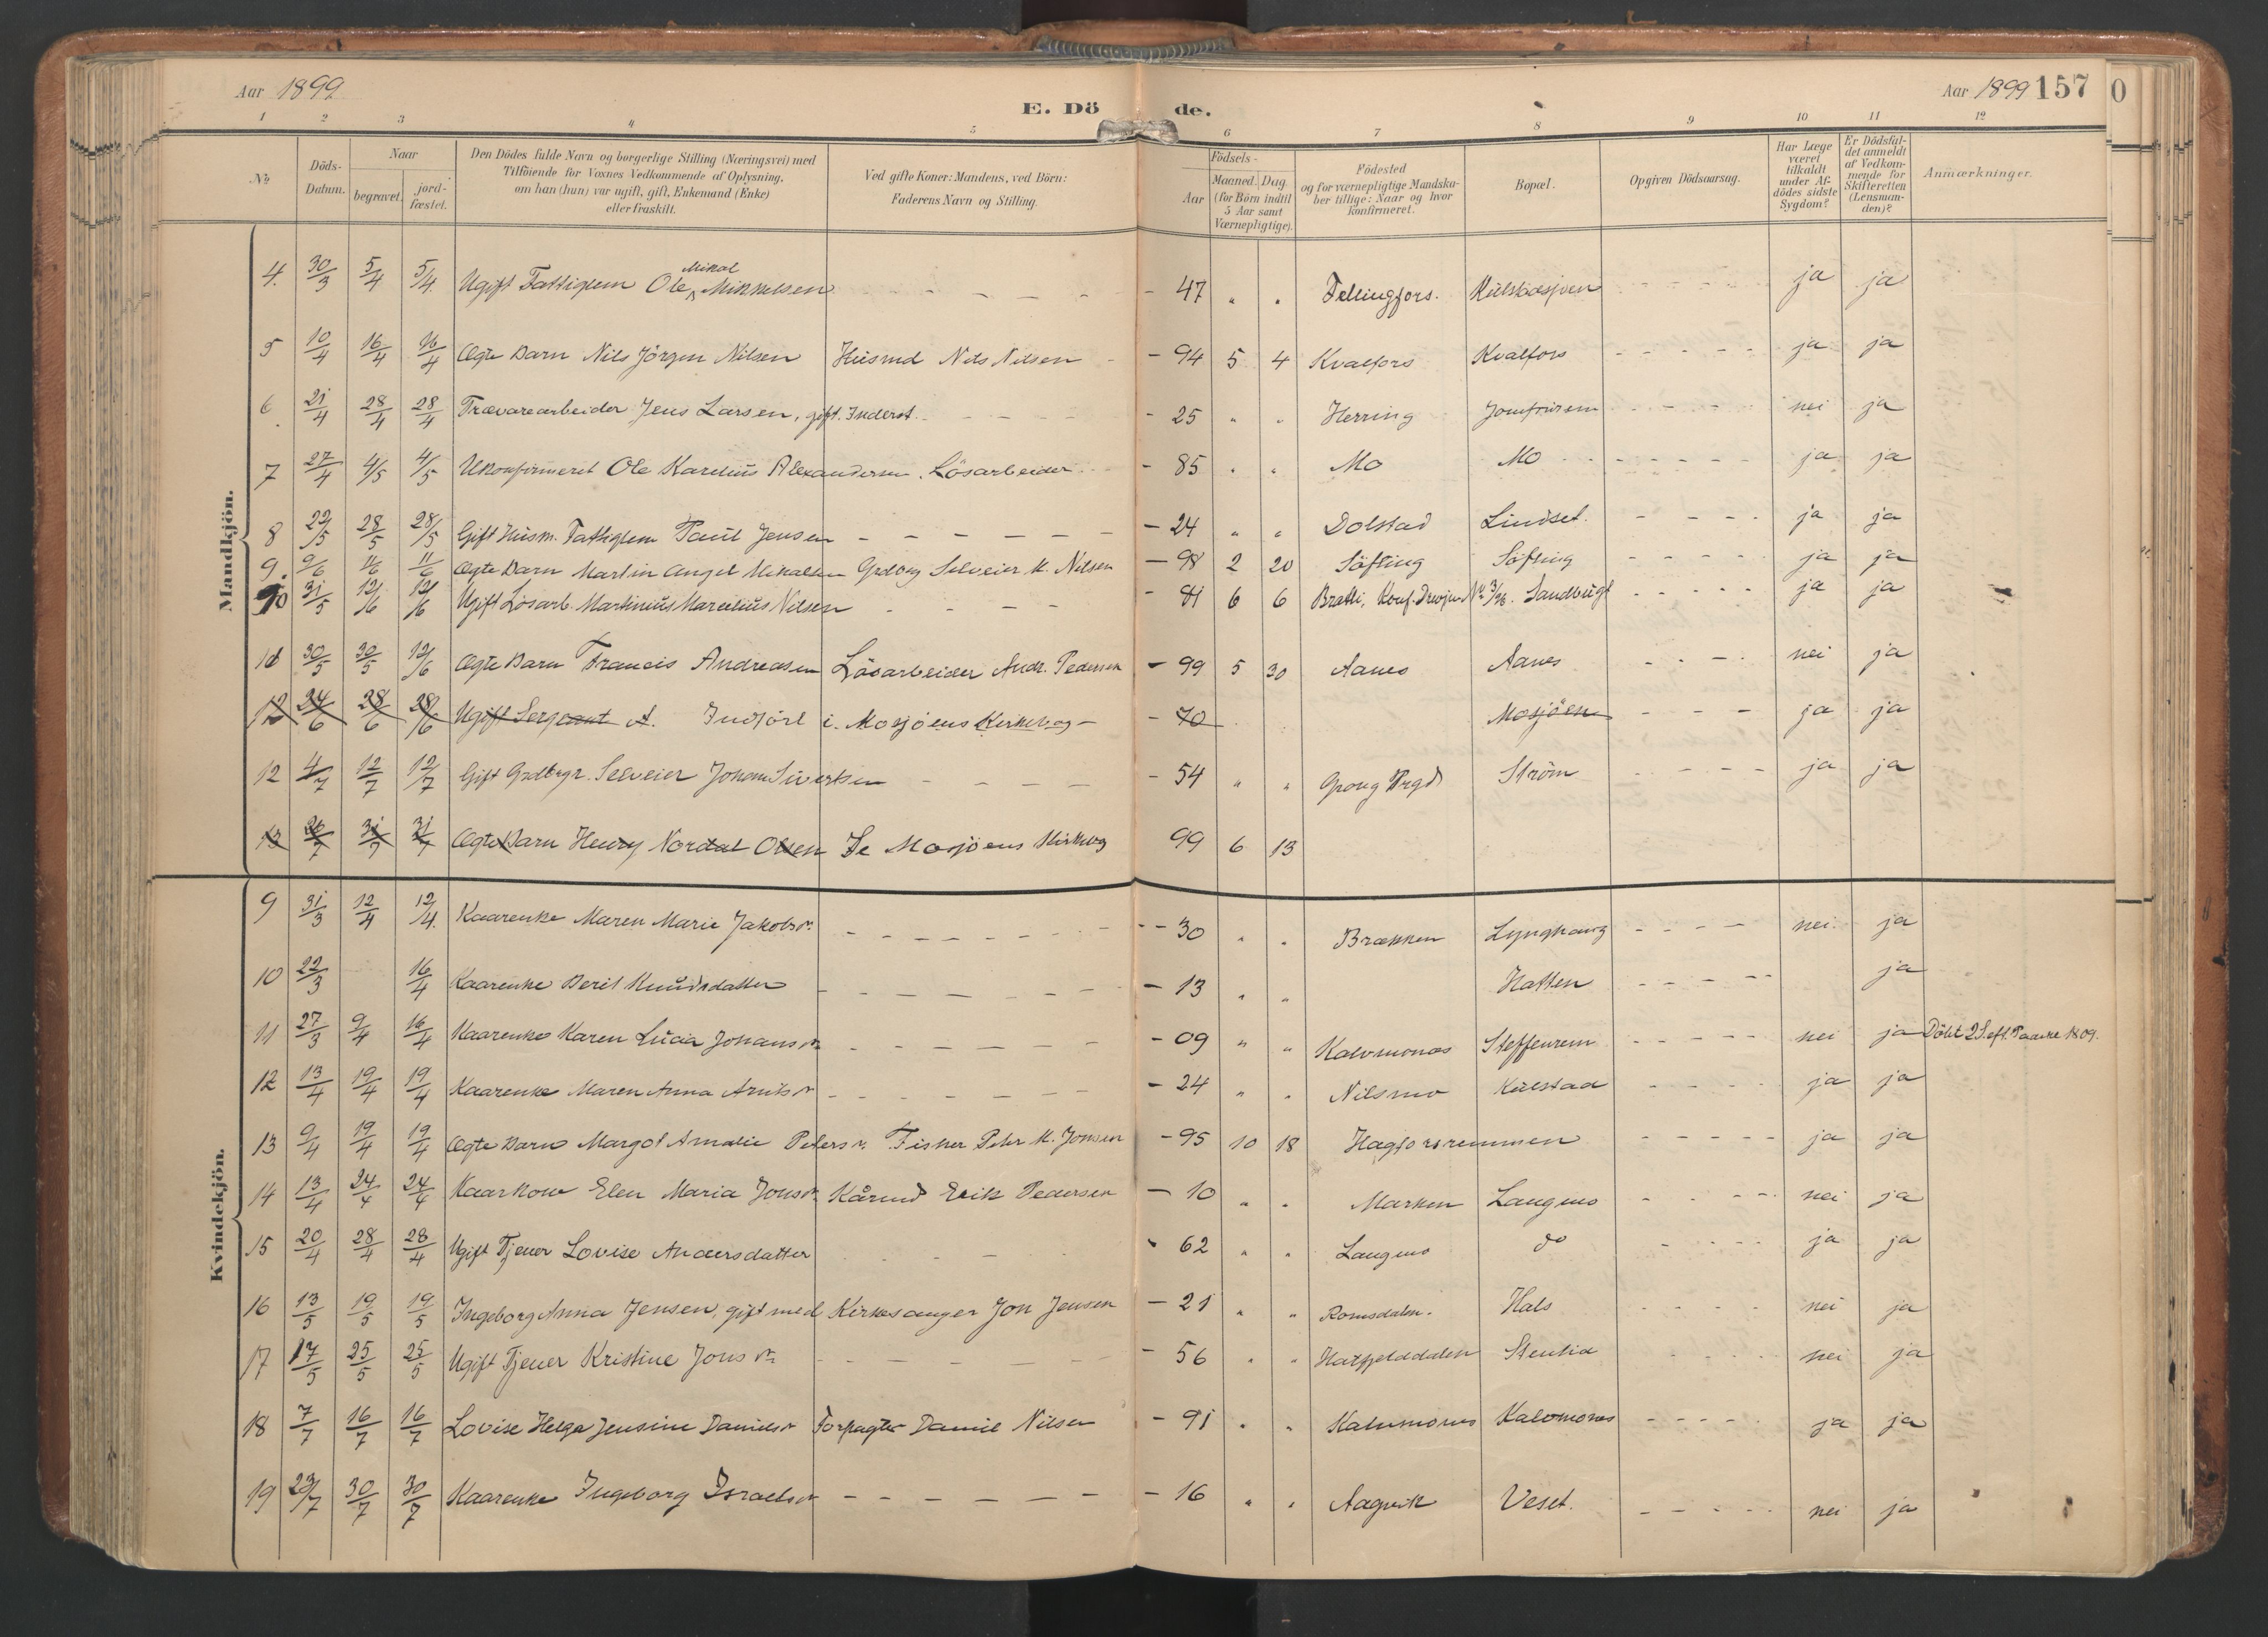 Aar 1899 E. Döde. Aar 1899 157
0
1 2 3 4 5 6 7 8 9 10 11 12
No
Döds-Datum.
Naar
begravet. jord-fæstet.
Den Dödes fulde Navn og borgerlige Stilling (Næringsvei) med
Tilföiende for Voxnes Vedkommende af Oplysning,
om han (hun) var ugift, gift, Enkemand (Enke)
eller fraskilt.
Ved gifte Koner: Mandens, ved Börn:
Faderens Navn og Stilling.
Födsels-
Aar Maaned. Dag.
(for Börn indtil
5 Aar samt
Værnepligtige).
Födested
og for værnepligtige Mandska-
ber tillige: Naar og hvor
konfirmeret.
Bopæl.
Opgiven Dödsaarsag.
Har Læge
været
tilkaldt
under Af-
dödes sidste
Sygdom?
Er Dödsfal-
det anmeldt
af Vedkom-
mende for
Skifteretten
(Lensman-
den)?
Anmærkninger.
Mandkjön.
4. 30/3 5/4 5/4. Ugift Fattiglem Ole Mikal Mikkelsen - - - - - 47 " " Fellingfors. Kulstadsjøen - - - - ja ja
5 10/4 16/4 16/4 Ægte Barn Nils Jörgen Nilsen Husmd Nils Nilsen - 94 5 4 Kvalfors Kvalfors - - - - - ja ja
6 21/4 28/4 28/4 Trævarearbeider Jens Larsen, gift. Inderst. - - - 25 " " Herring Jomfrurem - - - - nei ja
7 27/4 4/5 4/5 Ukonfirmeret Ole Karelius Alexandersen. Lösarbeider - 85 " " Mo Mo - - - - - ja ja
8 22/5 28/5 28/5 Gift Husm. Fattiglem Paul Jensen - - - - - - 24 " " Dolstad Lindset. - - - - ja ja
9. 9/6 11/6 11/6 Ægte Barn Martin Angel Mikalsen Grdbrg Selveier M. Nilsen - 98 2 20 Söfting Söfting - - - - - ja ja
10 31/5 12/6 12/6 Ugift Lösarb. Martinius Marcelius Nilsen - - - - 81 6 6 Bratli, Konf. Drevjen Sandbugt - - - - - ja ja
11 30/5 30/5 12/6 Ægte Barn Francis Andreasen Lösarbeider Andr. Pedersen - 99 5 30 Aanes Aanes - - - - nei ja
12 24/6 28/6 28/6 Ugift Sergeant A. Indförl i Mosjöens Kirkebog - - 70 Mosjöen - - - ja ja
12 4/7 12/7 12/7 Gift Grdbrgr. Selveier Johan Sivertsen - - - - - 54 " " Grong Prgd Ström - - - - ja ja
13 26/7 31/7 31/7 Ægte Barn Henry Nordal Olsen Se Mosjöens Kirkebog 99 6 13
Kvindekjön.
9 31/3 12/4 12/4. Kaarenke Maren Marie Jakobsdr. - - - - - - - - 30 " " Brækken Lynghaug - - - - nei. ja
10 22/3 16/4 Kaarenke Berit Knudsdatter - - - - - - - 13 " " Hatten - - - - ja
11 27/3 9/4 16/4 Kaarenke Karen Lucia Johansdr - - - - - - - 09 " " Kalvmonas Steffenrem - - - - - nei ja Döbt 2 S. eft. Paaske 1809.
12 13/4 19/4 19/4 Kaarenke Maren Anna Arntsdr - - - - - - - 24 " " Nilsmo Kulstad - - - - ja ja
13 9/4 19/4 19/4 Ægte Barn Margot Amalie Petersdr. Fisker Petr M. Jonsen - 95 10 18 Hagforsremmen - - - - - ja ja
14 13/4 24/4 24/4 Kaarkone Elen Maria Jonsdr. Kårmd Erik Pedersen - 10 " " Marken Langmo - - - - nei ja
15 20/4 28/4 28/4 Ugift Tjener Lovise Andersdatter - - - - 62 " " Langmo do - - - - ja ja
16 13/5 19/5 19/5 Ingeborg Anna Jensen, gift med Kirkesanger Jon Jensen - 21 " " Romsdalen. Hals - - - - nei ja
17 17/5 25/5 25/5 Ugift Tjener Kristine Jonsdr. - - - - - - 56 " " Hatfjelddalen Stenlia - - - - nei ja
18 7/7 16/7 16/7 Lovise Helga Jensine Danielsdr Forpagter Daniel Nilsen - 91 " " Kalvmones Kalvmones - - - - ja ja
19 23/7 30/7 30/7 Kaarenke Ingeborg Israelsdr - - - - - - - 16 " " Aagvik Veset. - - - - - nei ja